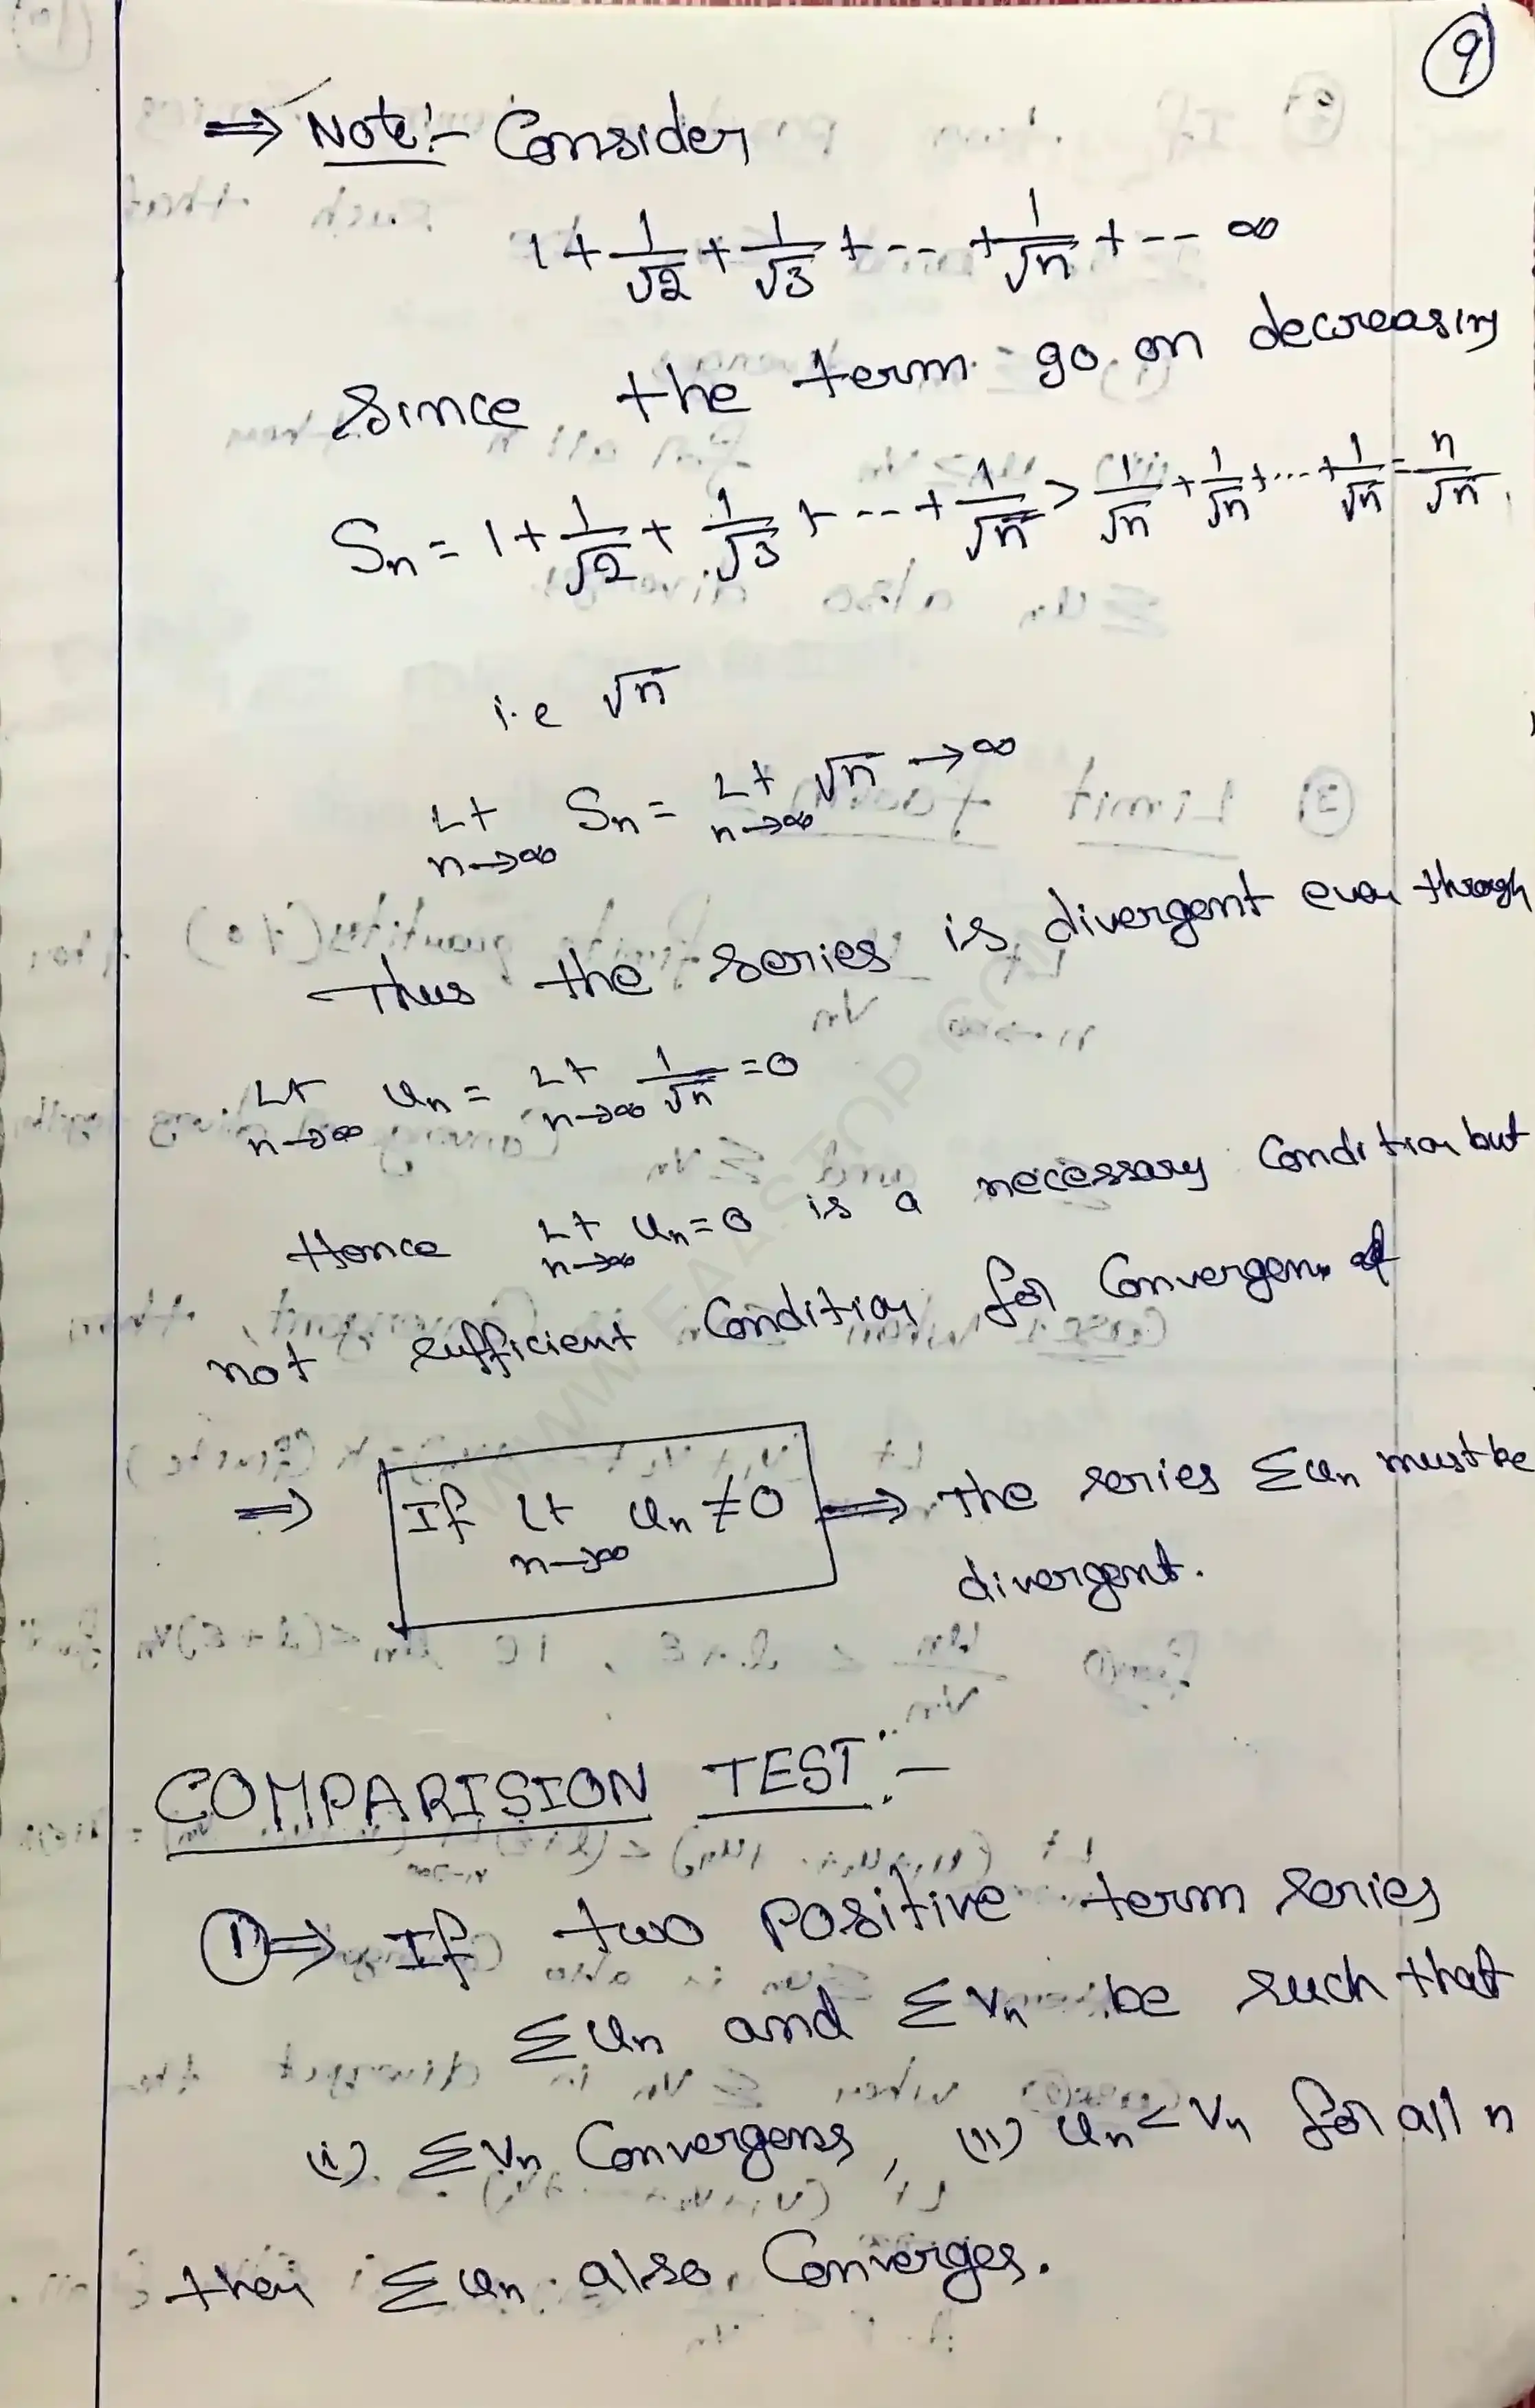 9
⇒ Note:- Consider
1 + 1/√2 + 1/√3 + -- + 1/√n + -- ∞
Since the term go on decreasing
Sn = 1 + 1/√2 + 1/√3 + -- + 1/√n > 1/√n + 1/√n + ... + 1/√n = n/√n.
i.e √n
Lt n→∞ Sn = Lt n→∞ √n → ∞
Thus the series is divergent even though
Lt n→∞ un = Lt n→∞ 1/√n = 0
Hence Lt n→∞ un = 0 is a necessary Condition but
not sufficient Condition for Convergence of
⇒ If Lt n→∞ un ≠ 0 ⇒ The series Σun must be
divergent.
COMPARISION TEST:-
① ⇒ If two positive term series
Σun and Σvn be such that
(i) Σvn Convergens, (ii) un < vn for all n
then Σun also Converges.
WWW.FAASTOP.COM